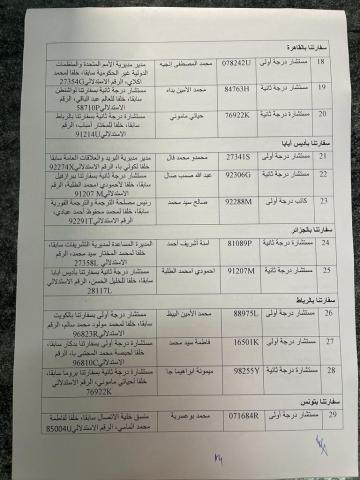 سفارتنا بالقاهرة
18 مستشار درجة أولى 078242U محمد المصطفى إنجيه مدير مديرية الأمم المتحدة والمنظمات
الدولية غير الحكومية سابقا، خلفا لمحمد
الرقم الاستدلالي 27354G
19 مستشار درجة ثانية 84763H محمد الأمين بداه مستشار درجة ثانية بسفارتنا بواشنطن
سابقا، خلفا للعالم عبد الباقي، الرقم
الاستدلالي 58710P
20 مستشارة درجة ثانية 76922K حياتي ماموني مستشارة درجة ثانية بسفارتنا بالرباط
سابقا، خلفا للمختار أمباب، الرقم
الاستدلالي 91214U
سفارتنا بأديس أبابا
21 مستشار درجة أولى 27341S محمدو محمد فال مدير مديرية البريد والعلاقات العامة سابقا
خلفا لكولي با، الرقم الاستدلالي 92274X
22 مستشار درجة ثانية 92306G عبد الله صمب صال مستشار درجة ثانية بسفارتنا ببرازفيل
سابقا، خلفا لأحمودي امحمد الطلبة، الرقم
الاستدلالي 91207 M
23 كاتب درجة أولى 92288M صالح سيد محمد رئيس مصلحة الترجمة والترجمة الفورية
سابقا، خلفا لمحمد محفوظ أحمد عبادي،
الرقم الاستدلالي 92291T
سفارتنا بالجزائر
24 مستشارة درجة ثانية 81089P آمنة أشريف أحمد المديرة المساعدة لمديرية التشريفات سابقا،
خلفا لمحمد المختار سيد محمد، الرقم
الاستدلالي 27358L
25 مستشار درجة ثانية 91207M احمودي امحمد الطلبة مستشار درجة ثانية بسفارتنا بأديس أبابا
سابقا، خلفا للخليل الحسن، الرقم الاستدلالي
28117L
سفارتنا بالرباط
26 مستشار درجة أولى 88975L محمد الأمين البيظ مستشار درجة أولى بسفارتنا بالكويت
سابقا، خلفا لمحمد مولود محمد سالم، الرقم
الاستدلالي 96823R
27 مستشارة درجة أولى 16501K فاطمة سيد محمد مستشارة درجة أولى بسفارتنا بدكار سابقا،
خلفا لحبصة محمد المجتبى با، الرقم
الاستدلالي 96810C
28 مستشارة درجة ثانية 98255Y ميمونة ابراهيما جا مستشارة درجة ثانية بسفارتنا بروما سابقا،
خلفا لحياتي ماموني، الرقم الاستدلالي
76922K
سفارتنا بتونس
29 مستشار درجة أولى 071684R محمد بوعسرية منسق خلية الاتصال سابقا، خلفا لفاطمة
محمد المامي، الرقم الاستدلالي 85004U